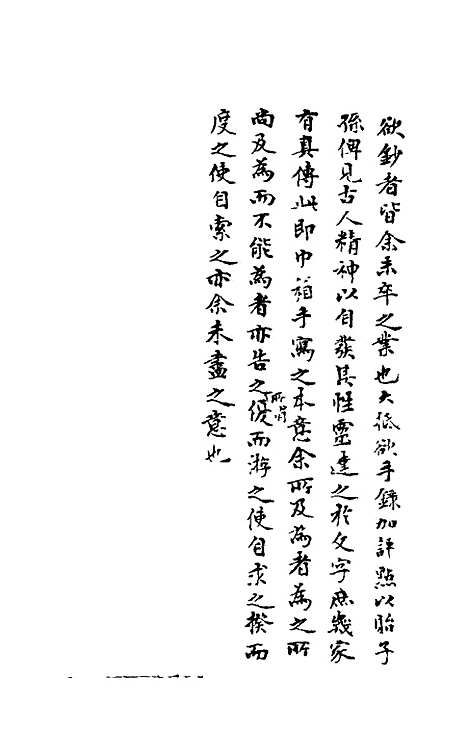 欲鈔者皆余未卒之業也大抵欲手錄加評點以貽子
孫俾見古人精神以自發其性靈達之於文字庶幾家
有真傳此即巾箱手寫之本意余所及為者為之所
尚及為而不能為者亦告之所謂優而游之使自求之揆而
度之使自索之亦余未盡之意也